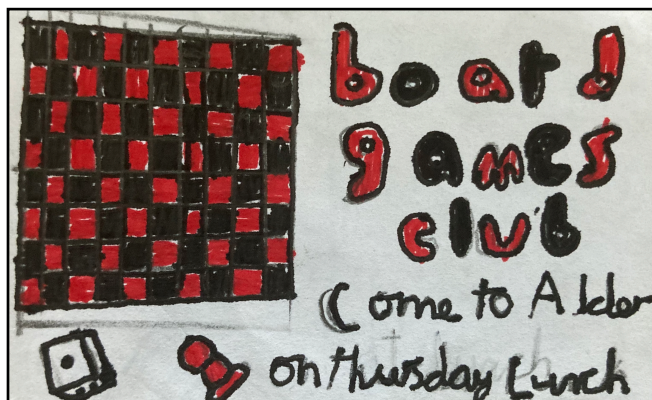 board
games
club
Come to Alder
on Thursday Lunch